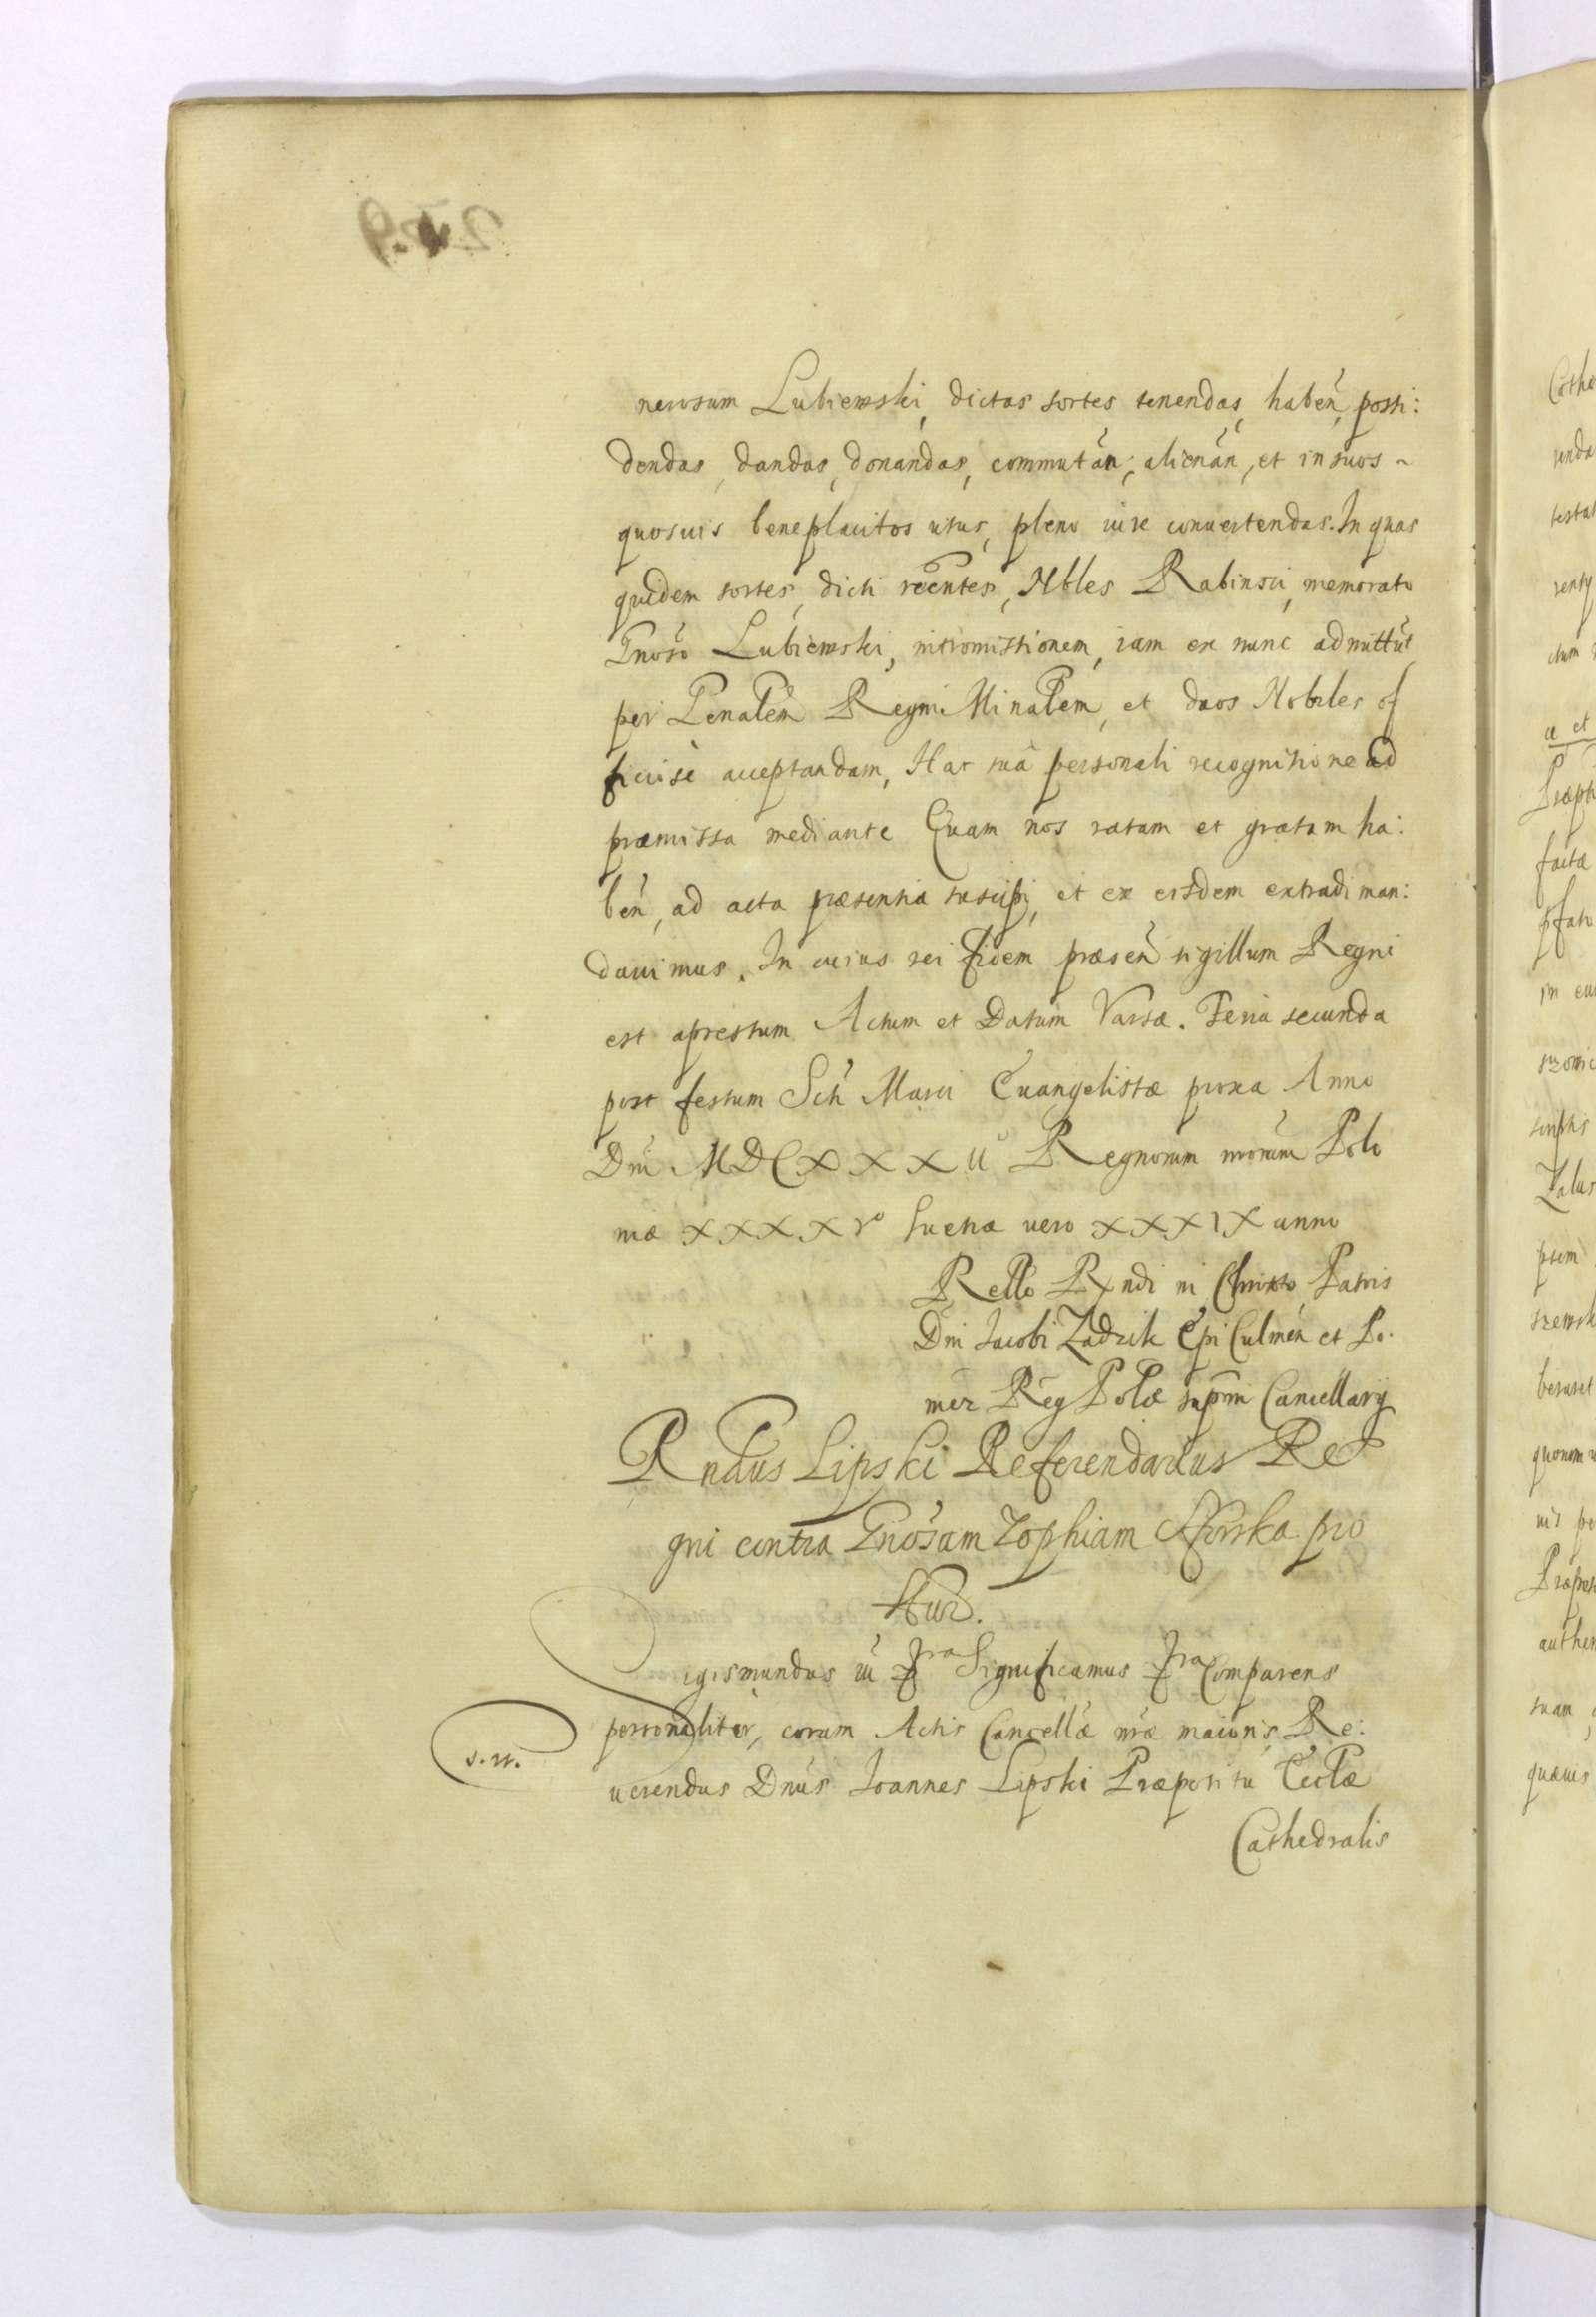 nerosum Lubiewski, dictas sortes tenendas, habeñ, possi:
dendas, dandas, donandas, commutãn, alienãn, et in suos
quosvis beneplacitos usus, pleno iure convertendas. In quas
quidem sortes, dicti rẽcntes, Nbles Rabinsci, memorato
Gnoso Lubiewski, intromissionem, iam ex nunc admittũt
per Gẽnalem Regni Minalem, et duos Nobiles of
ficiose acceptandam, Hac sua personali recognitione ad
præmissa mediante Quam nos ratam et gratam ha:
beñ, ad acta præsentia suscipi, et ex eisdem extradi man:
davimus. In cuius rei fidem præseñ sigillum Regni
est apressum Actum et Datum Varsæ. Feria secunda
post festum Scti Marci Evangelistæ proxa Anno
Dni MDCXXXII Regnorum nrorum Polo
niæ XXXXVo Sueciæ vero XXXIX anno
Rello Rndi in Christo Patris
Dni Jacobi Zadzik Epi Culmeñ et Po.
mez Reg Polæ supmi Cancellarij
Rndus Lipski Referendarius Re
gni contra Gnosam Zophiam
igismundus iii Significamus Comparens
personaliter, coram Actis Cancellæ nræ maioris, Re:
verendus Dnus Joannes Lipski Præpositu Ecclæ
Cathedralis